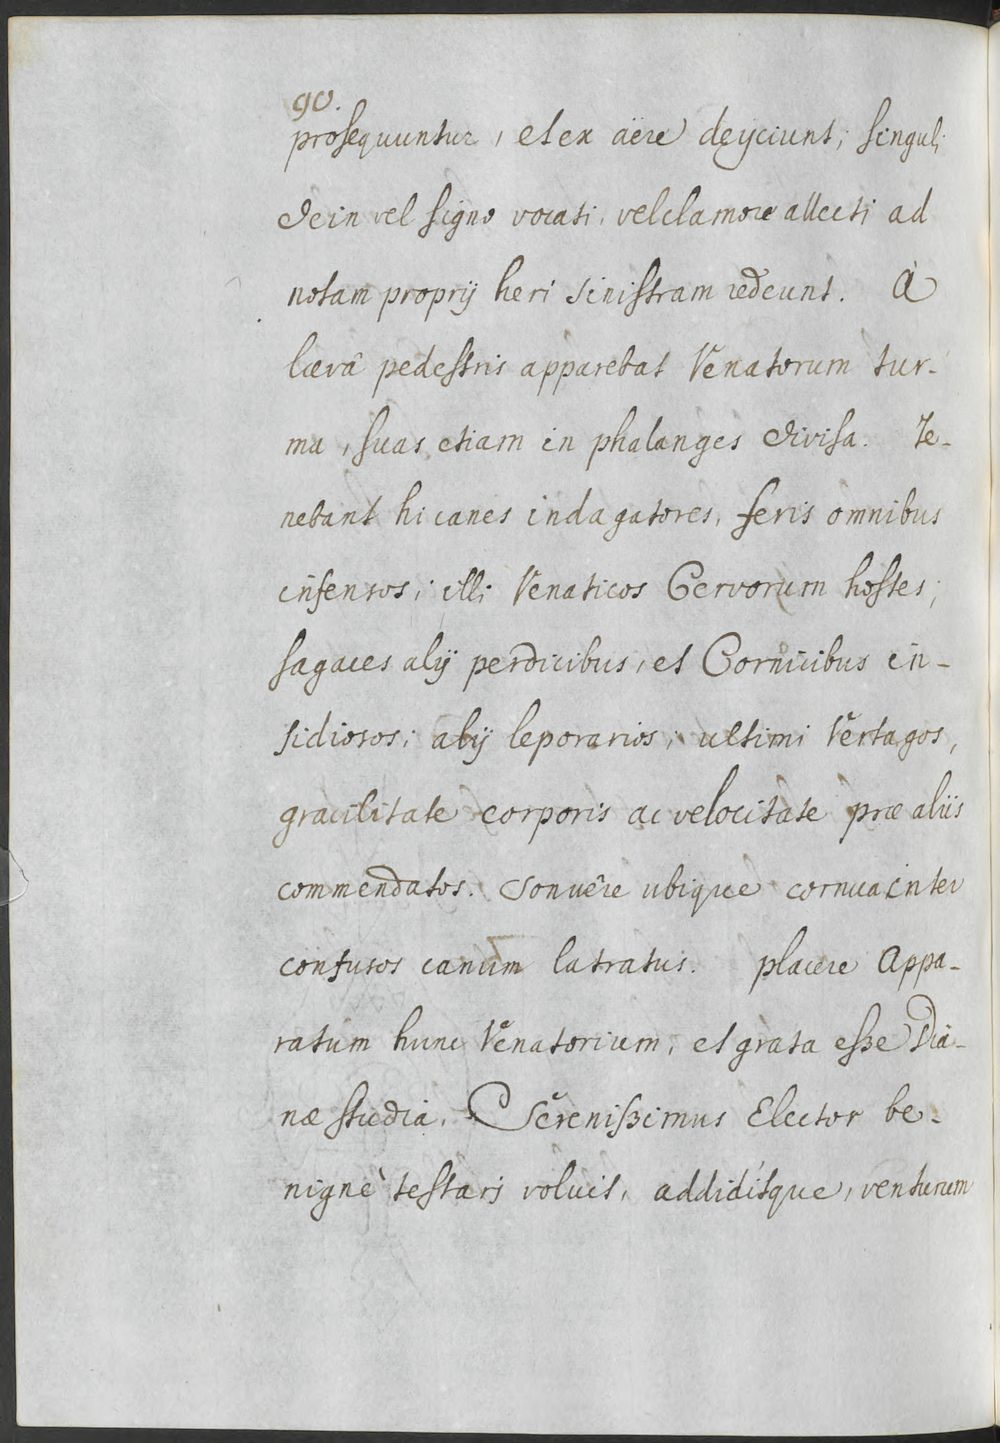 90.
prosequuntur, et ex aëre deÿciunt; singuli
dein vel signo vocati, vel clamore allecti ad
notam proprÿ heri sinistram redeunt. À
lævâ pedestris apparebat Venatorum tur-
ma, suas etiam in phalanges divisa. Te-
nebant hi canes indagatores, feris omnibus
infensos; illi Venaticos Cervorum hostes;
sagaces alÿ perdicibus, et Cornicibus in-
sidiosos; alÿ leporarios; ultimi Vertagos,
gracilitate corporis ac velocitate præ aliis
commendatos. Sonuêre ubique cornua inter
confusos canum latratus. placere Appa-
ratum hunc Venatorium, et grata esse Dia-
næ studia, Serenissimus Elector be-
nignè testari voluit, addiditque, venturum